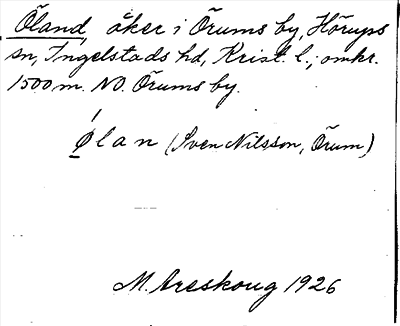 Öland, åker i Örums by, Hörups
sn, Ingelstads hd, Krist. l.; omkr.
1500 m. NO. Örums by.
Ølan (Sven Nilsson, Örum)
M. Areskoug 1926